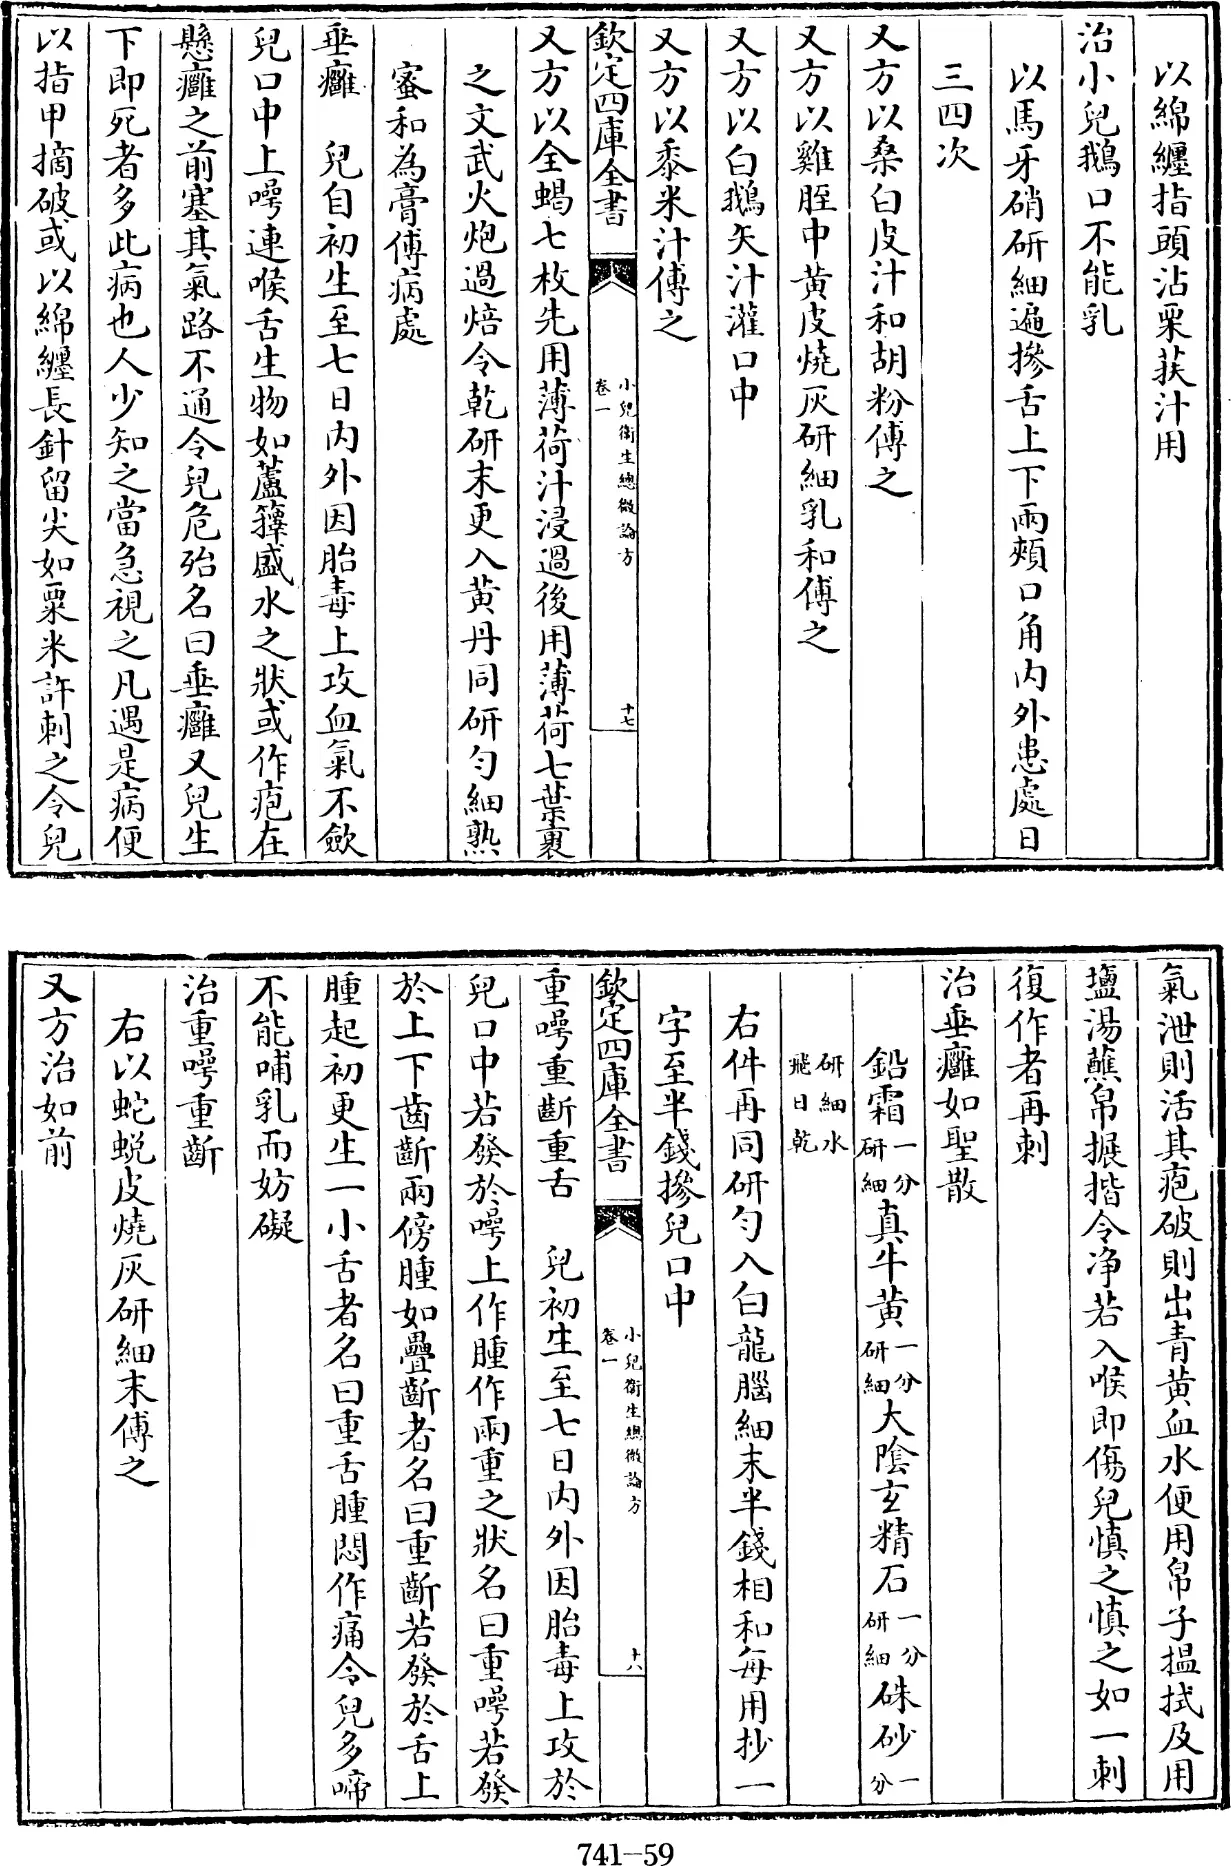 以綿纏指頭沾栗莢汁用
治小兒鵝口不能乳
以馬牙硝研細遍摻舌上下兩頰口角內外患處日
三四次
又方以桑白皮汁和胡粉傅之
又方以雞脛中黃皮燒灰研細乳和傅之
又方以白鵝矢汁灌口中
又方以黍米汁傅之
欽定四庫全書
小兒衛生總微論方
卷一
十七
又方以全蝎七枚先用薄荷汁浸過後用薄荷七葉裹
之文武火炮過焙令乾研末更入黃丹同研勻細熟
蜜和為膏傅病處
垂癰 兒自初生至七日內外因胎毒上攻血氣不斂
兒口中上噚連喉舌生物如蘆籜盛水之狀或作疱在
懸癰之前塞其氣路不通令兒危殆名曰垂癰又兒生
下即死者多此病也人少知之當急視之凡遇是病便
以指甲摘破或以綿纏長針留尖如粟米許刺之令兒
氣泄則活其疱破則出青黃血水便用帛子搵拭及用
鹽湯蘸帛捩揩令净若入喉即傷兒慎之慎之如一刺
復作者再刺
治垂癰如聖散
鉛霜一分研細真牛黃一分研細大陰玄精石一分研細硃砂一分
研細水飛日乾
右件再同研勻入白龍腦細末半錢相和每用抄一
字至半錢摻兒口中
欽定四庫全書
小兒衛生總微論方
卷一
十八
重噚重齗重舌 兒初生至七日內外因胎毒上攻於
兒口中若發於噚上作腫作兩重之狀名曰重噚若發
於上下齒齗兩傍腫如疊齗者名曰重齗若發於舌上
腫起初更生一小舌者名曰重舌腫悶作痛令兒多啼
不能哺乳而妨礙
治重噚重齗
右以蛇蛻皮燒灰研細末傅之
又方治如前
741-59